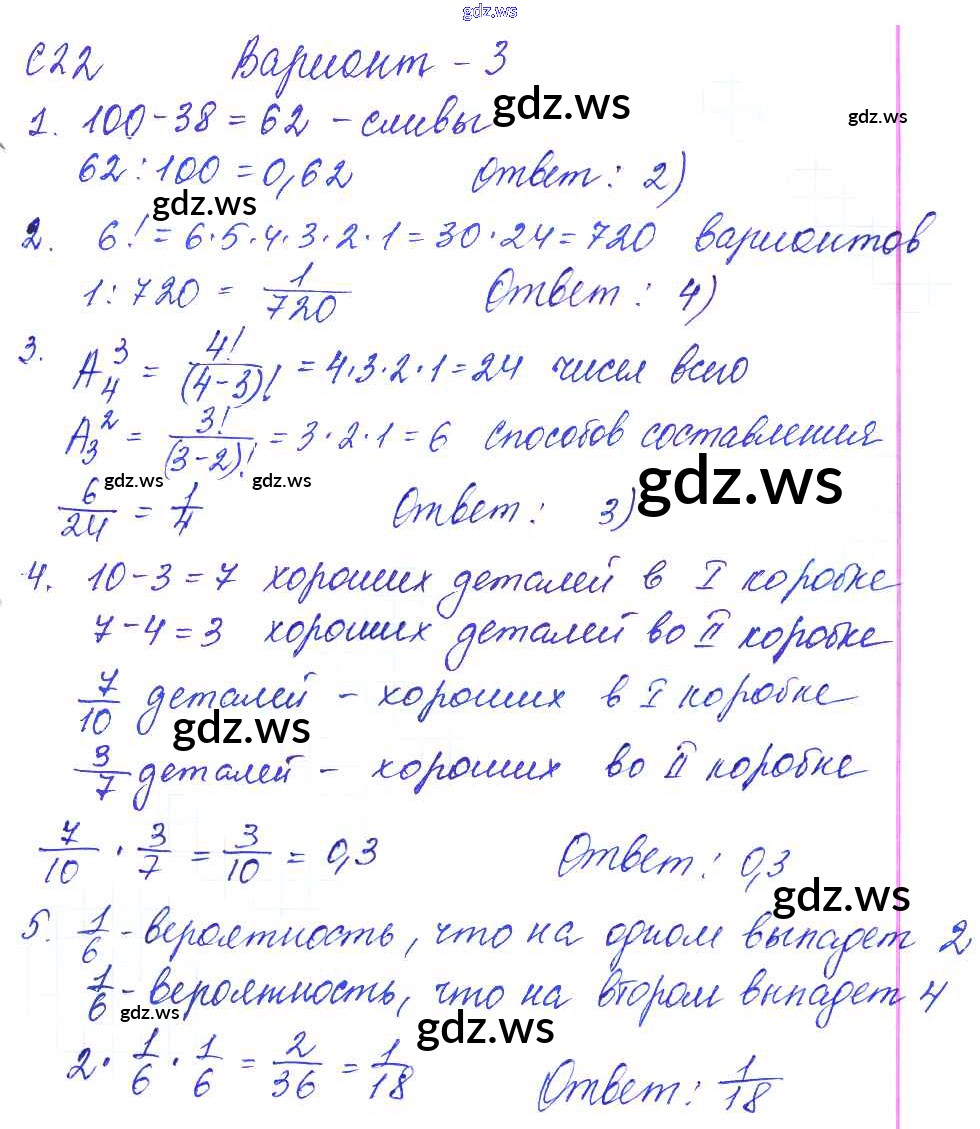 gdz.ws
С22 Вариант - 3
1. 100 - 38 = 62 - сливы gdz.ws gdz.ws
62 : 100 = 0,62 Ответ: 2)
gdz.ws
2. 6! = 6·5·4·3·2·1 = 30·24 = 720 вариантов
1 : 720 = 1/720 Ответ: 4)
3. A₄³ = 4!/(4-3)! = 4·3·2·1 = 24 чисел всего
A₃² = 3!/(3-2)! = 3·2·1 = 6 способов составления
gdz.ws gdz.ws gdz.ws
6/24 = 1/4 Ответ: 3)
4. 10 - 3 = 7 хороших деталей в I коробке
7 - 4 = 3 хороших деталей во II коробке
7/10 деталей - хороших в I коробке
gdz.ws
3/7 деталей - хороших во II коробке
7/10 · 3/7 = 3/10 = 0,3 Ответ: 0,3
gdz.ws
5. 1/6 - вероятность, что на одном выпадет 2
1/6 - вероятность, что на втором выпадет 4
gdz.ws gdz.ws
2 · 1/6 · 1/6 = 2/36 = 1/18 Ответ: 1/18